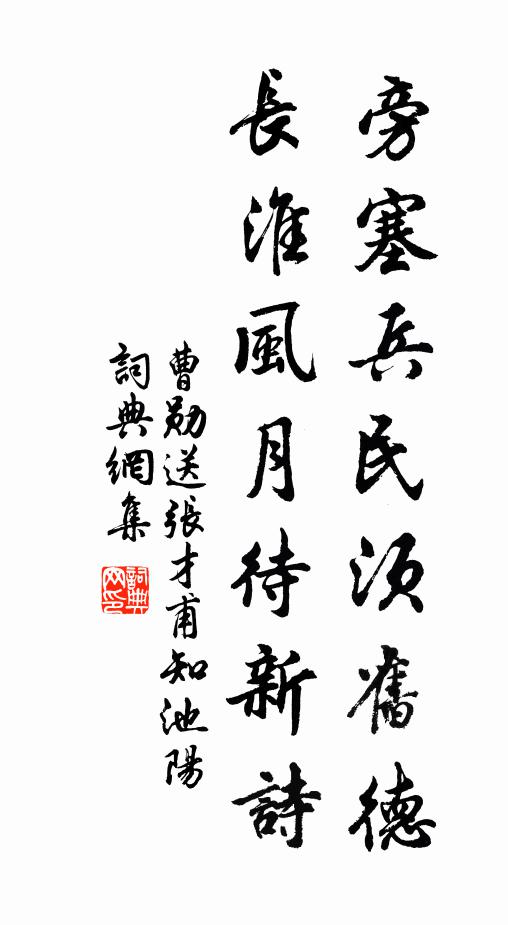 旁塞兵民須舊德
長淮風月待新詩
曹勛送張才甫知池陽
詞典網集
詞典
网印